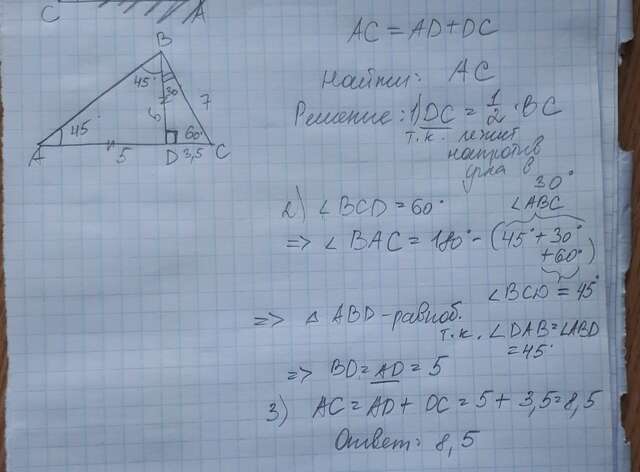 C A
AC = AD + DC
Найти: AC
B
45° 30°
7
45° 60°
A 5 D 3,5 C
Решение: 1) DC = 1/2 · BC
т.к. лежит
напротив
угла в
30°
2) ∠BCD = 60° ∠ABC
=> ∠BAC = 180° - (45° + 30°
+60°)
∠BCD = 45°
=> △ ABD - равноб.
т.к. ∠DAB = ∠ABD
= 45°
=> BD = AD = 5
3) AC = AD + DC = 5 + 3,5 = 8,5
Ответ: 8,5